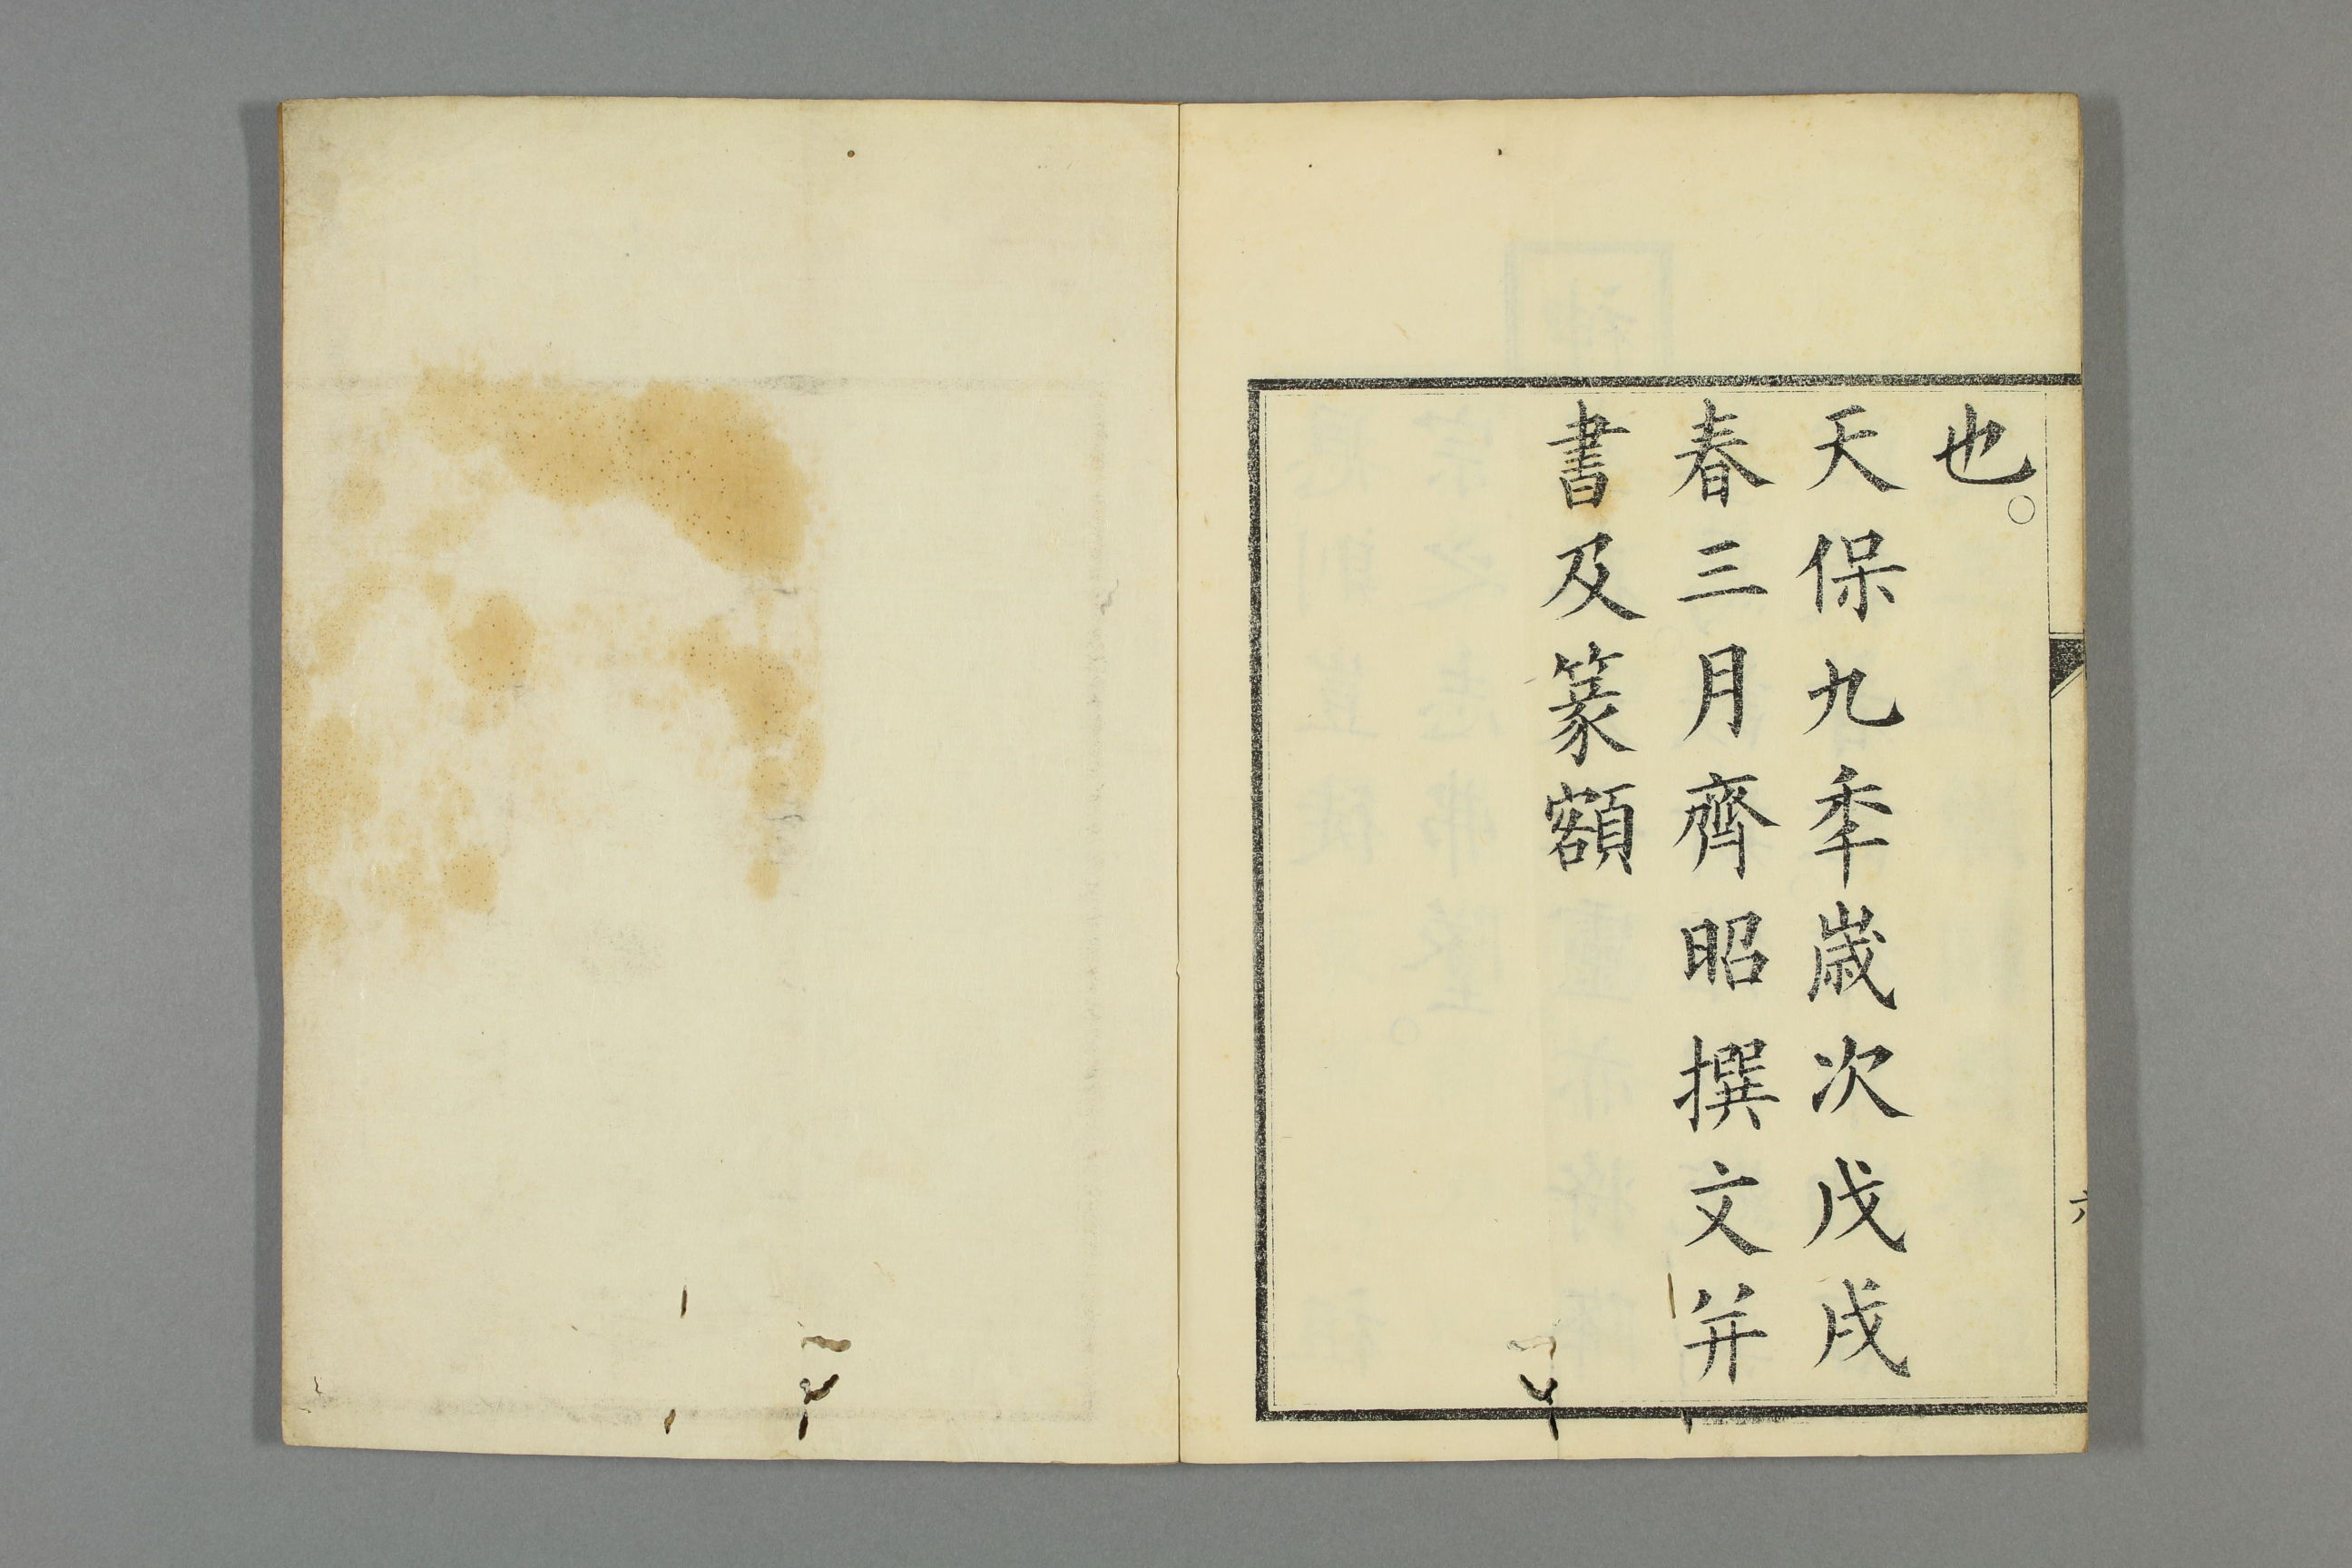 也。
天保九秊歳次戊戌
春三月齊昭撰文并
書及篆額
六